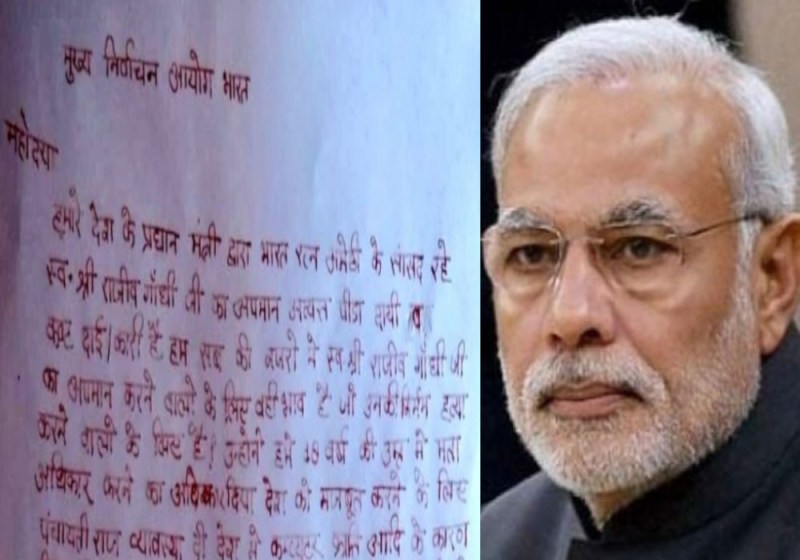 मुख्य निर्वाचन आयोग भारत
महोदया
हमारे देश के प्रधान मंत्री द्वारा भारत रत्न अमेठी के सांसद रहे
स्व॰ श्री राजीव गाँधी जी का अपमान अत्यन्त पीडा दायी व
कष्ट दाई/कारी है हम सब की नजरो मे स्व श्री राजीव गाँधी जी
का अपमान करने वालो के लिए वही भाव है जो उनकी निर्मम हत्या
करने वालो के लिए है! उन्होने हमे 18 वर्ष की उम्र मे मता
अधिकार करने का अधिकार दिया देश को मजबूत करने के लिए
पंचायती राज व्यावस्था दी देश मे कम्प्यूटर क्रान्ति आदि के कारण